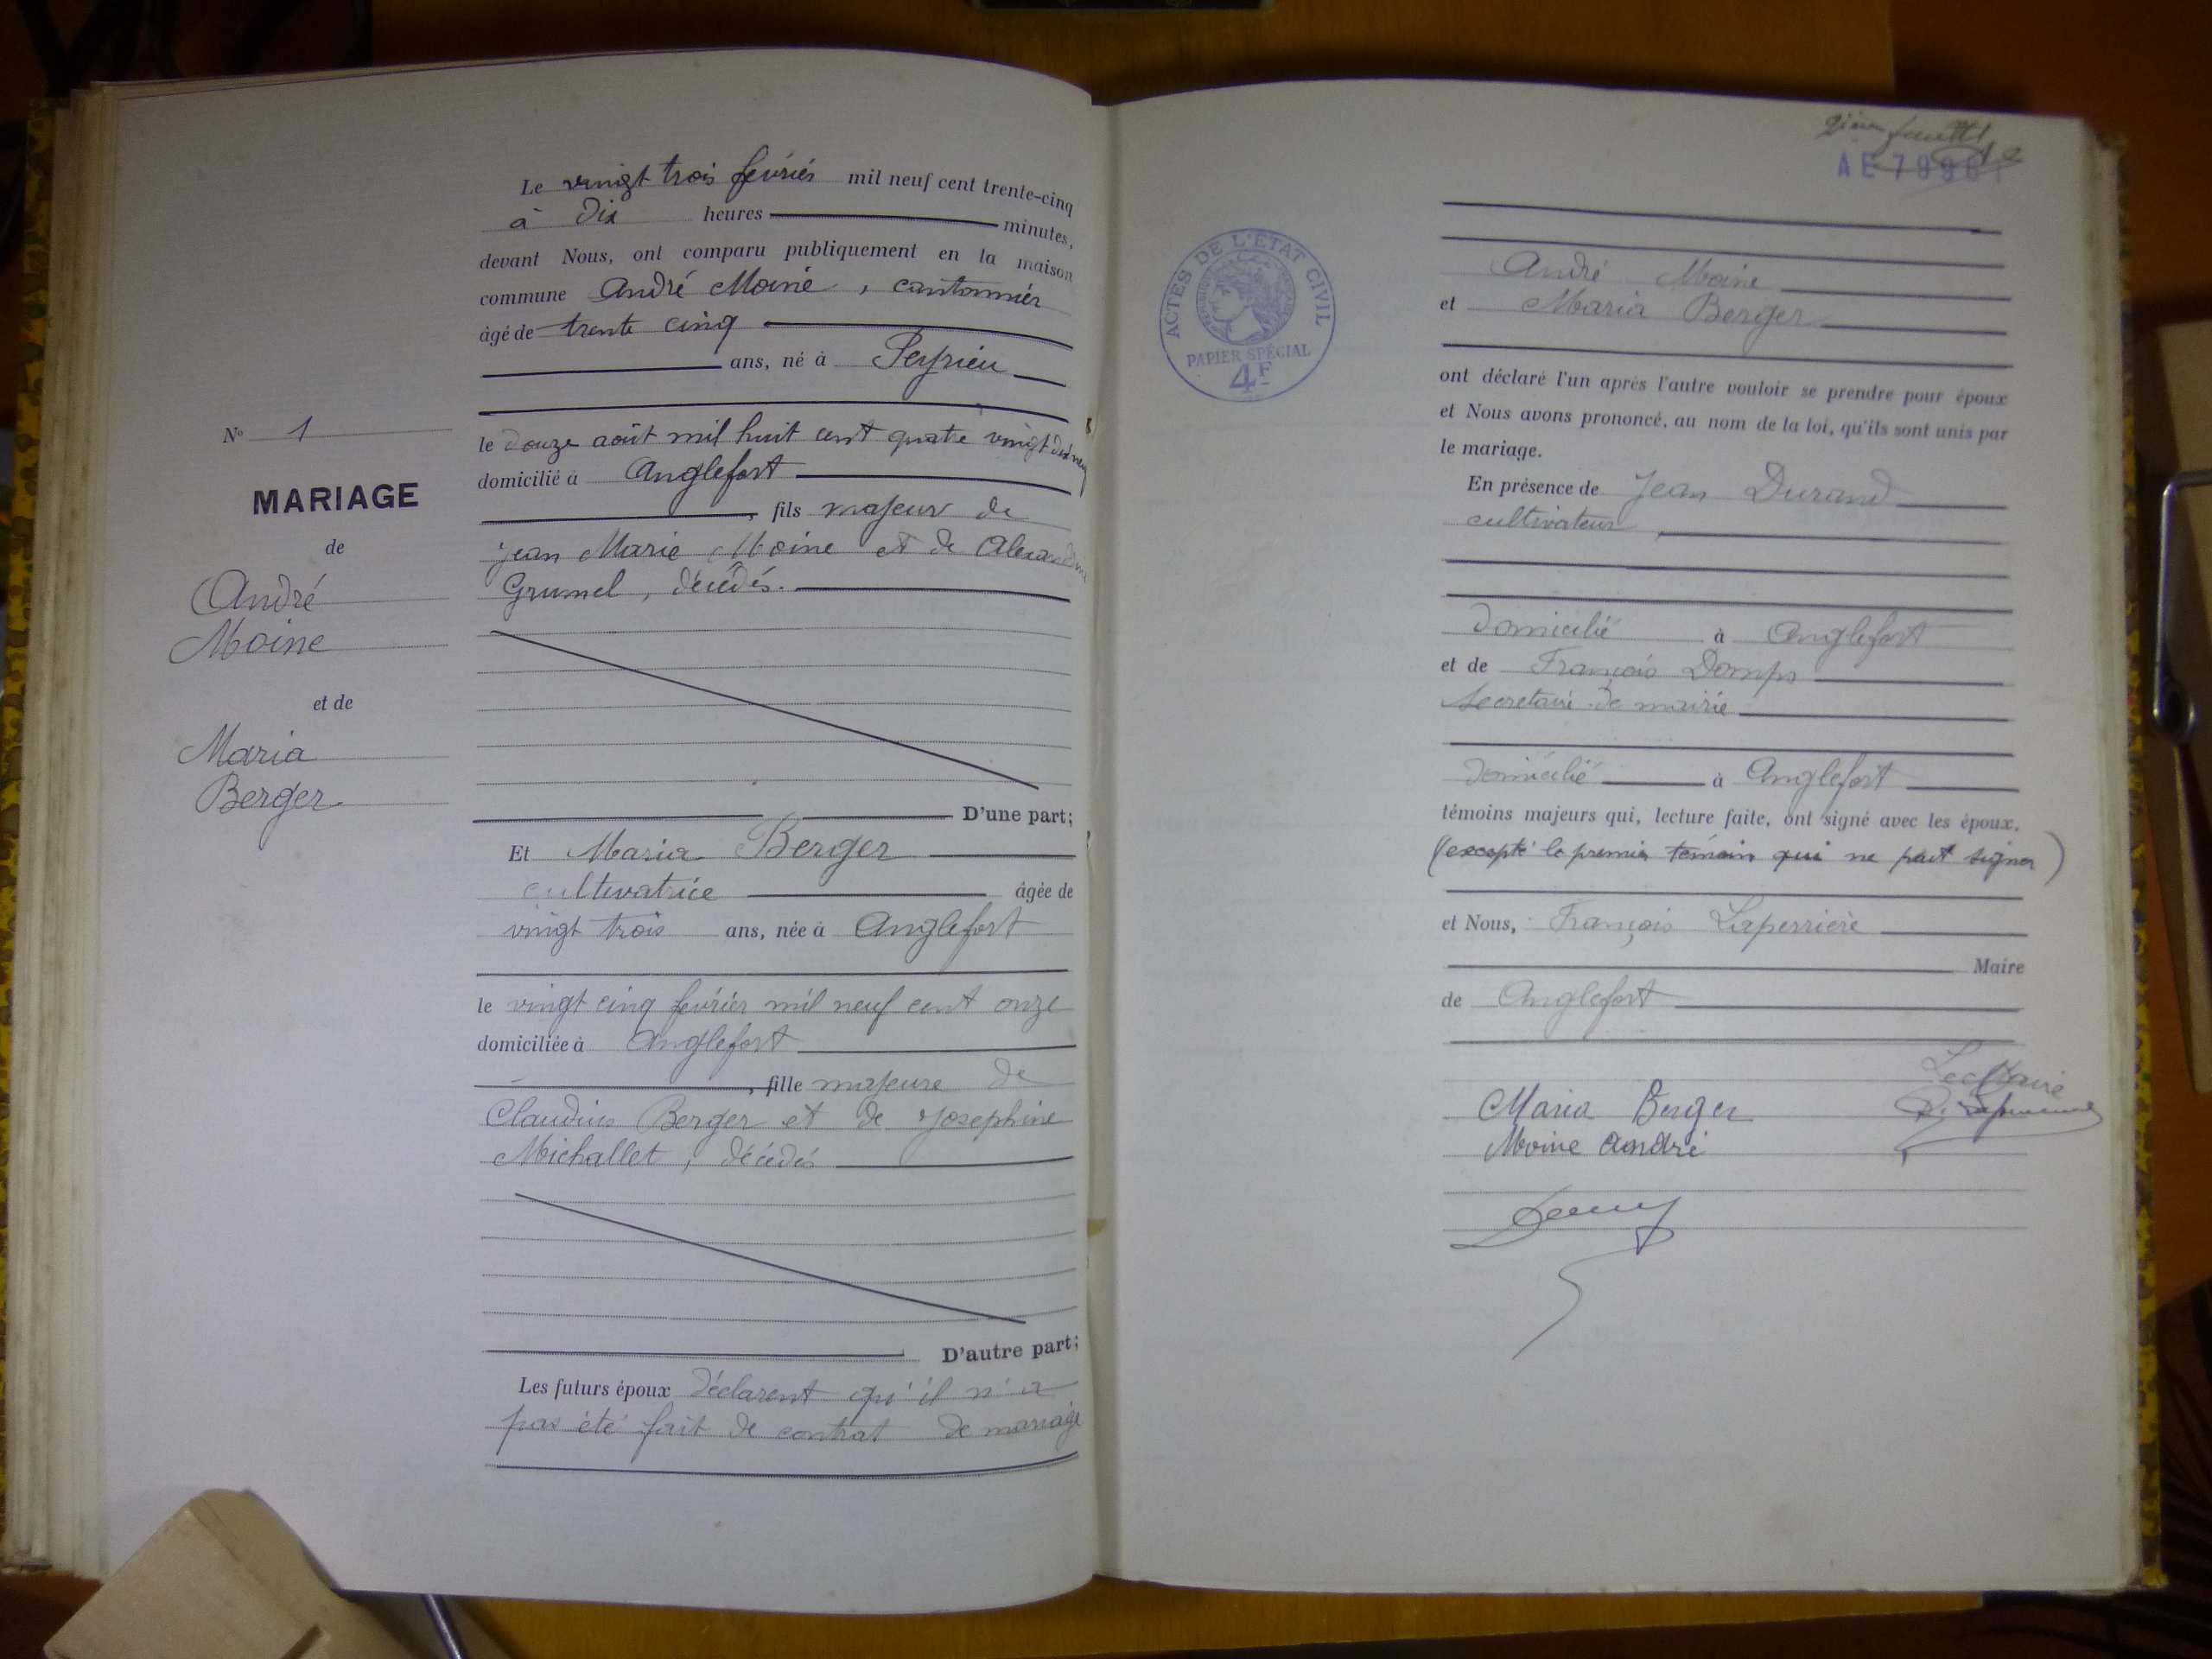 Le vingt trois février mil neuf cent trente-cinq
à dix heures minutes,
devant Nous, ont comparu publiquement en la maison
commune André Moine, cantonnier
âgé de trente cinq
ans, né à Peyrieu
N° 1
le douze août mil huit cent quatre vingt dix neuf
domicilié à Anglefort
MARIAGE
, fils majeur de
de
Jean Marie Moine et de Alexandrine
André
Grumel, décédés.
Moine
et de
Maria
Berger
D'une part;
Et Maria Berger
cultivatrice âgée de
vingt trois ans, née à Anglefort
le vingt cinq février mil neuf cent onze
domiciliée à Anglefort
, fille majeure de
Claudius Berger et de Josephine
Michallet, décédés
D'autre part;
Les futurs époux déclarent qu'il n'a
pas été fait de contrat de mariage
feuillet
AE 79961
ACTES DE L'ÉTAT CIVIL
PAPIER SPÉCIAL
4F
André Moine
et Maria Berger
ont déclaré l'un après l'autre vouloir se prendre pour époux
et Nous avons prononcé, au nom de la loi, qu'ils sont unis par
le mariage.
En présence de Jean Durand
cultivateur,
domicilié à Anglefort
et de François Domps
secretaire de mairie
domicilié à Anglefort
témoins majeurs qui, lecture faite, ont signé avec les époux,
(excepté le premier témoin qui ne peut signer)
et Nous, François Laperrière
Maire
de Anglefort
Le Maire
Maria Berger
F. Laperrière
Moine andré